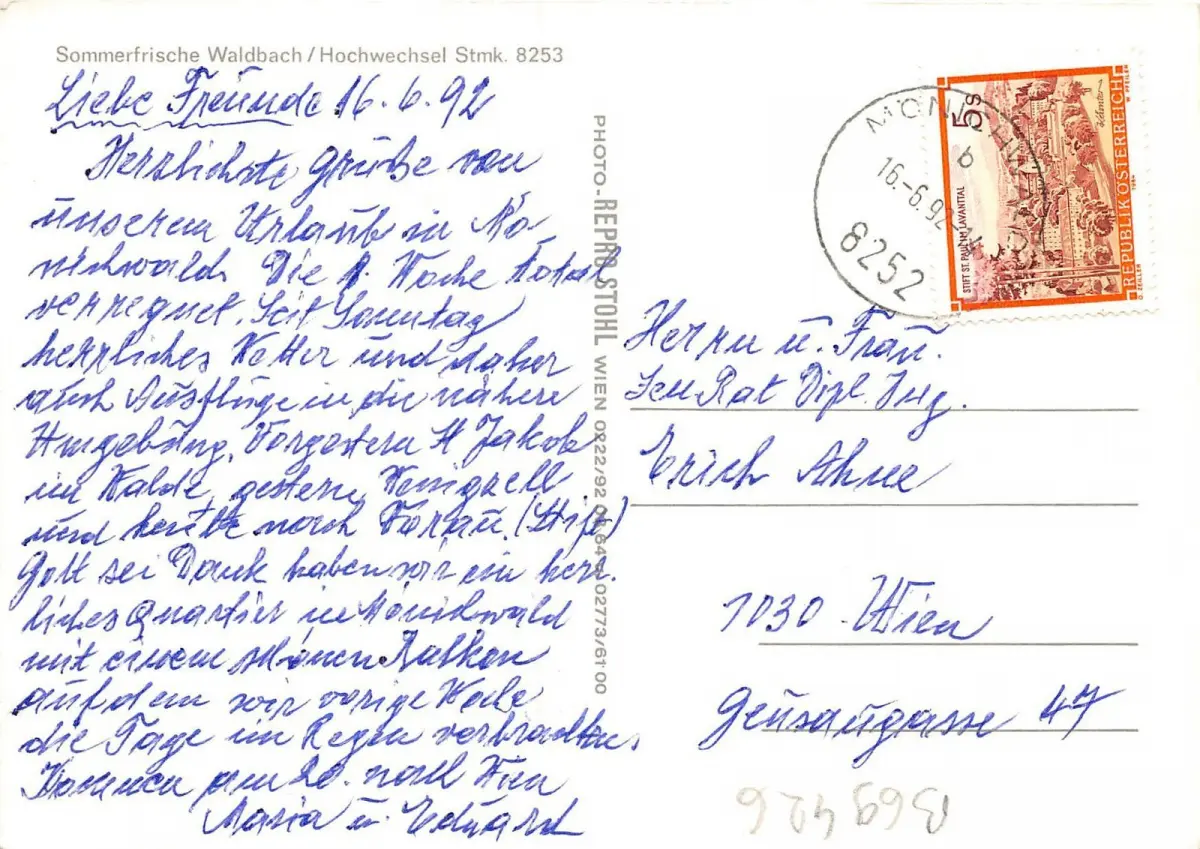 Sommerfrische Waldbach / Hochwechsel Stmk. 8253
Liebe Freunde 16.6.92
Herzlichste Grüße von
unserem Urlaub in Mö-
nichwald. Die 1. Woche total
verregnet. Seit Sonntag
herrliches Wetter und daher
auch Ausflüge in die nähere
Umgebung. Vorgestern St Jakob
im Walde, gestern Wenigzell
und heute nach Vorau. (Stift)
Gott sei Dank haben wir ein herr-
liches Quartier in Mönichwald
mit einem schönen Balkon
auf dem wir vorige Woche
die Tage im Regen verbrachten.
Kommen am 20. nach Wien
Maria u. Eduard
PHOTO-REPRO STOHL WIEN 0222/92 02773/61 00
MÖNICHWALD
b
16.-6.92
8252
5s
STIFT ST. PAUL IM LAVANTTAL
REPUBLIK ÖSTERREICH
Herrn u. Frau.
Sen Rat Dipl. Ing.
Erich Ahne
1030 Wien
Geusaugasse 47
B69 426